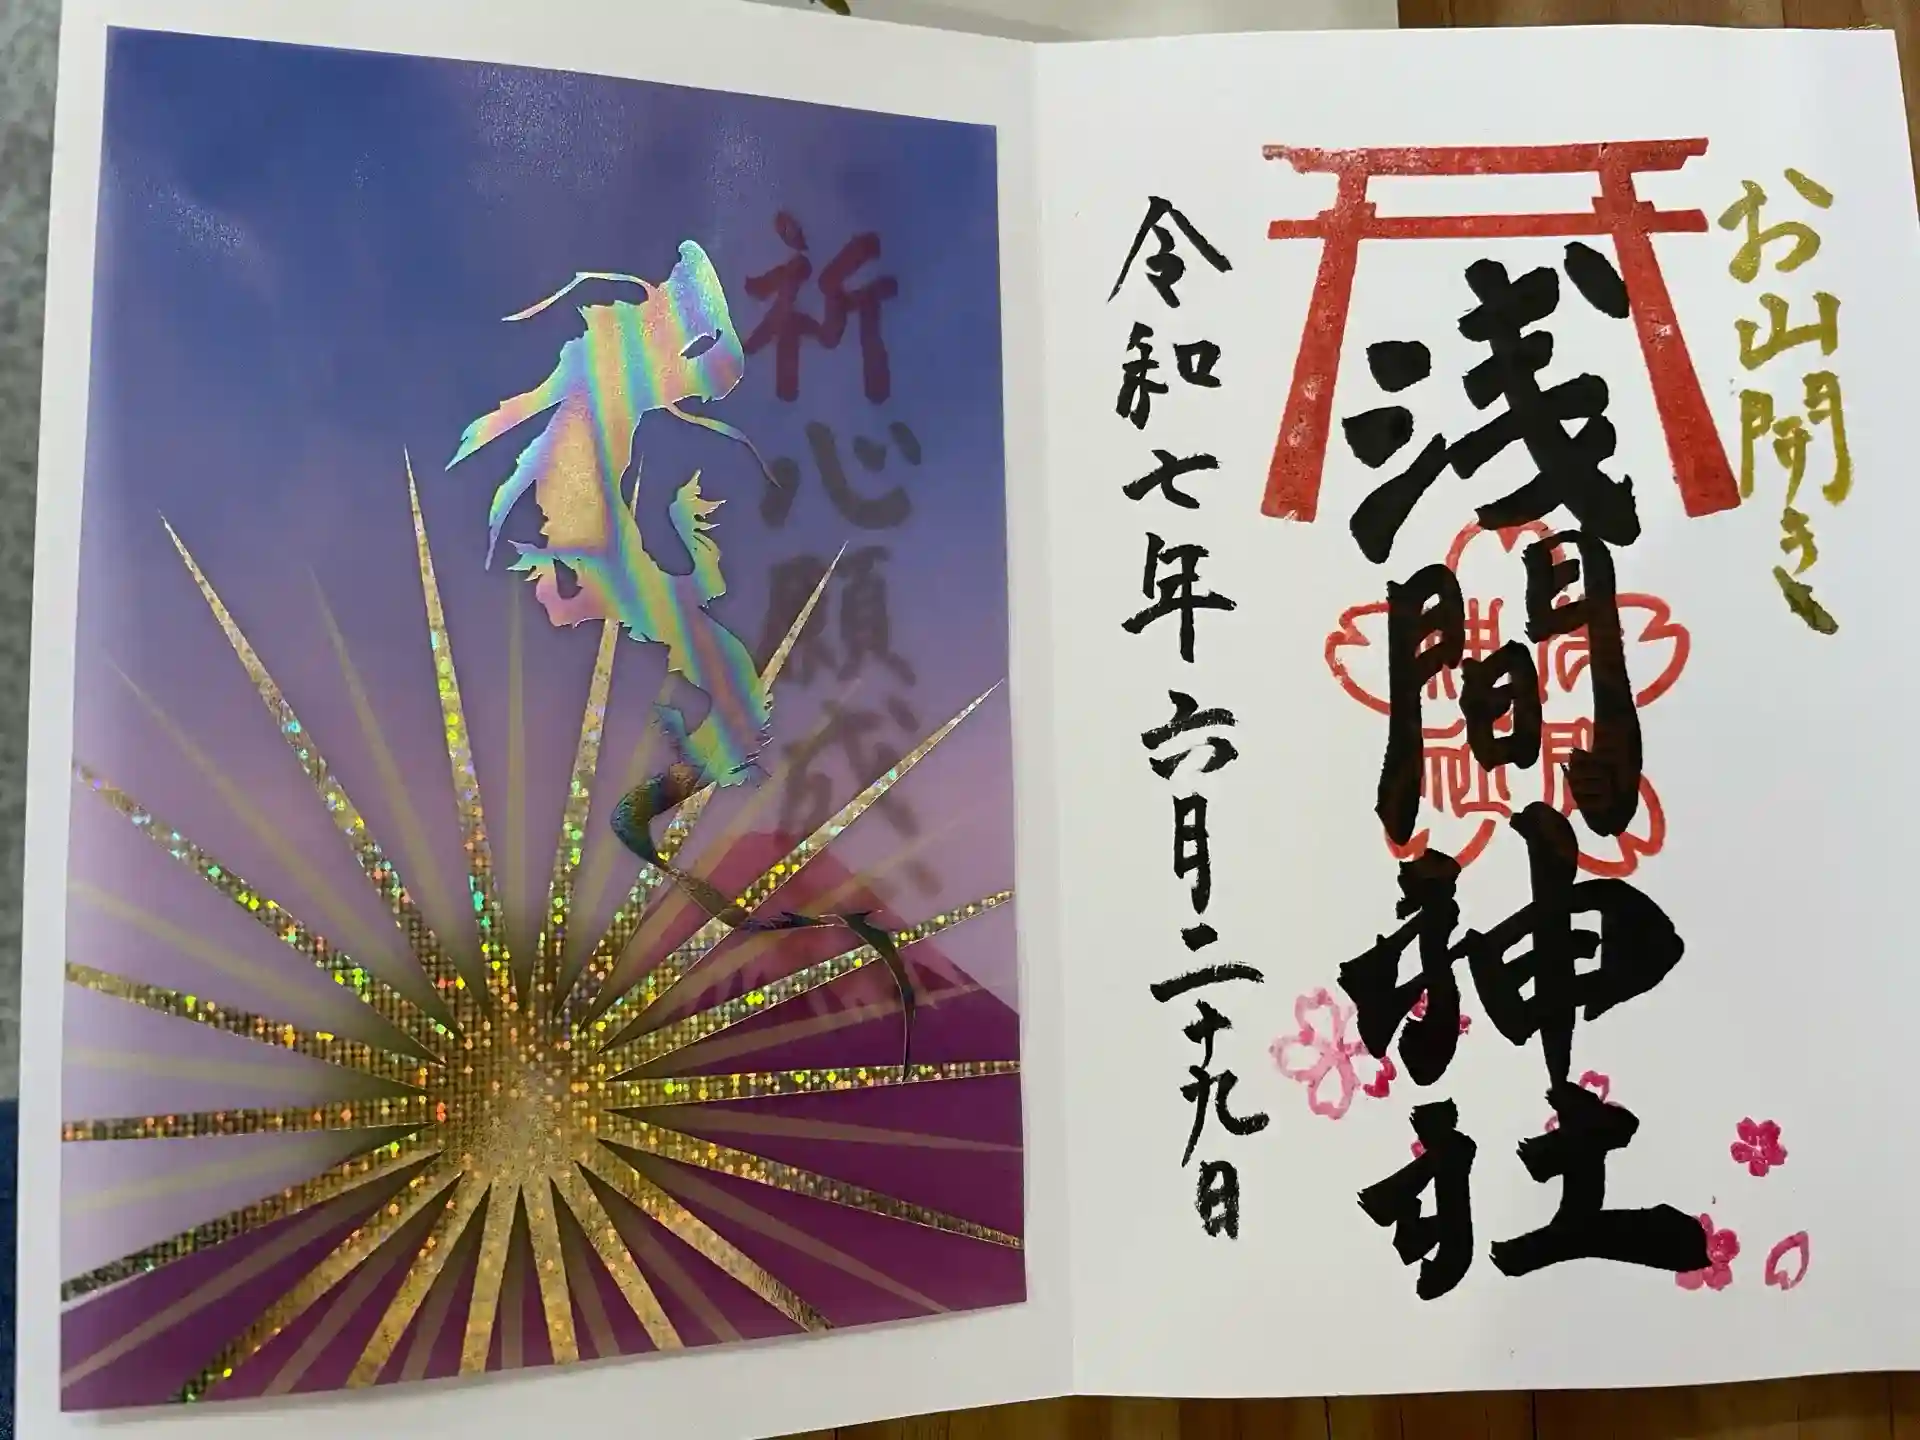 お山開き
浅間神社
浅間神社
令和七年六月二十九日
祈心願成